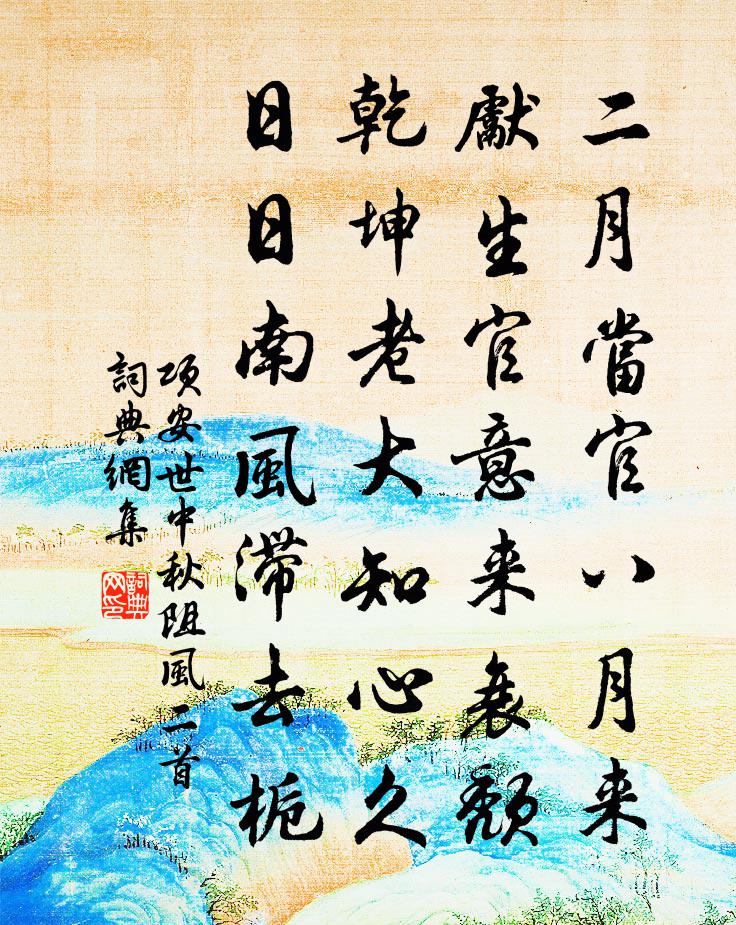 二月當官八月来
獻生官意来衰頽
乾坤老大知心久
日日南風滯去桅
項安世中秋阻風二首
詞典網集
詞典网印